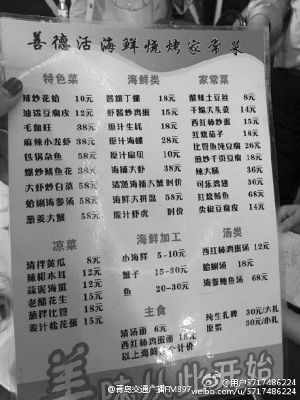 善德活海鲜烧烤家常菜
特色菜
辣炒花蛤 10元
油泼豆腐皮 12元
毛血旺 38元
麻辣小龙虾 38元
铁锅杂鱼 58元
爆炒鱿鱼花 38元
大虾炒白菜 58元
蛤蜊海参汤 58元
葱姜大蟹 58元
海鲜类
酱爆丁螺 18元
虾酱炒鸡蛋 15元
原汁生蚝 18元
原汁海螺 28元
原汁扇贝 10元
海捕大虾 38元
清蒸海捕大蟹 时价
海鲜大拼盘 58元
原汁虾虎 时价
家常菜
酸辣土豆丝 8元
干煸大头菜 14元
西红柿炒蛋 15元
红烧茄子 18元
比管鱼炖豆腐 26元
煎炒千页豆腐 18元
辣大肠 36元
可乐鸡翅 36元
红烧鲅鱼 68元
尖椒豆腐皮 14元
凉菜
清拌黄瓜 8元
辣根木耳 12元
蒜泥海蜇 12元
老醋花生 15元
葱拌比管 18元
姜汁松花蛋 15元
海鲜加工
小海鲜 5-10元
蟹子 15-30元
鱼 20-30元
主食
清汤面 6元
西红柿鸡蛋面 12元
以上海鲜
个计价
汤类
西红柿鸡蛋汤 12元
蛤蜊汤 18元
海参鲍鱼汤 68元
纯生扎啤 30元/大扎
原浆 30元/小扎
美
从此开始
@青岛交通广播FM897
@用户5717486224
weibo.com/5717486224